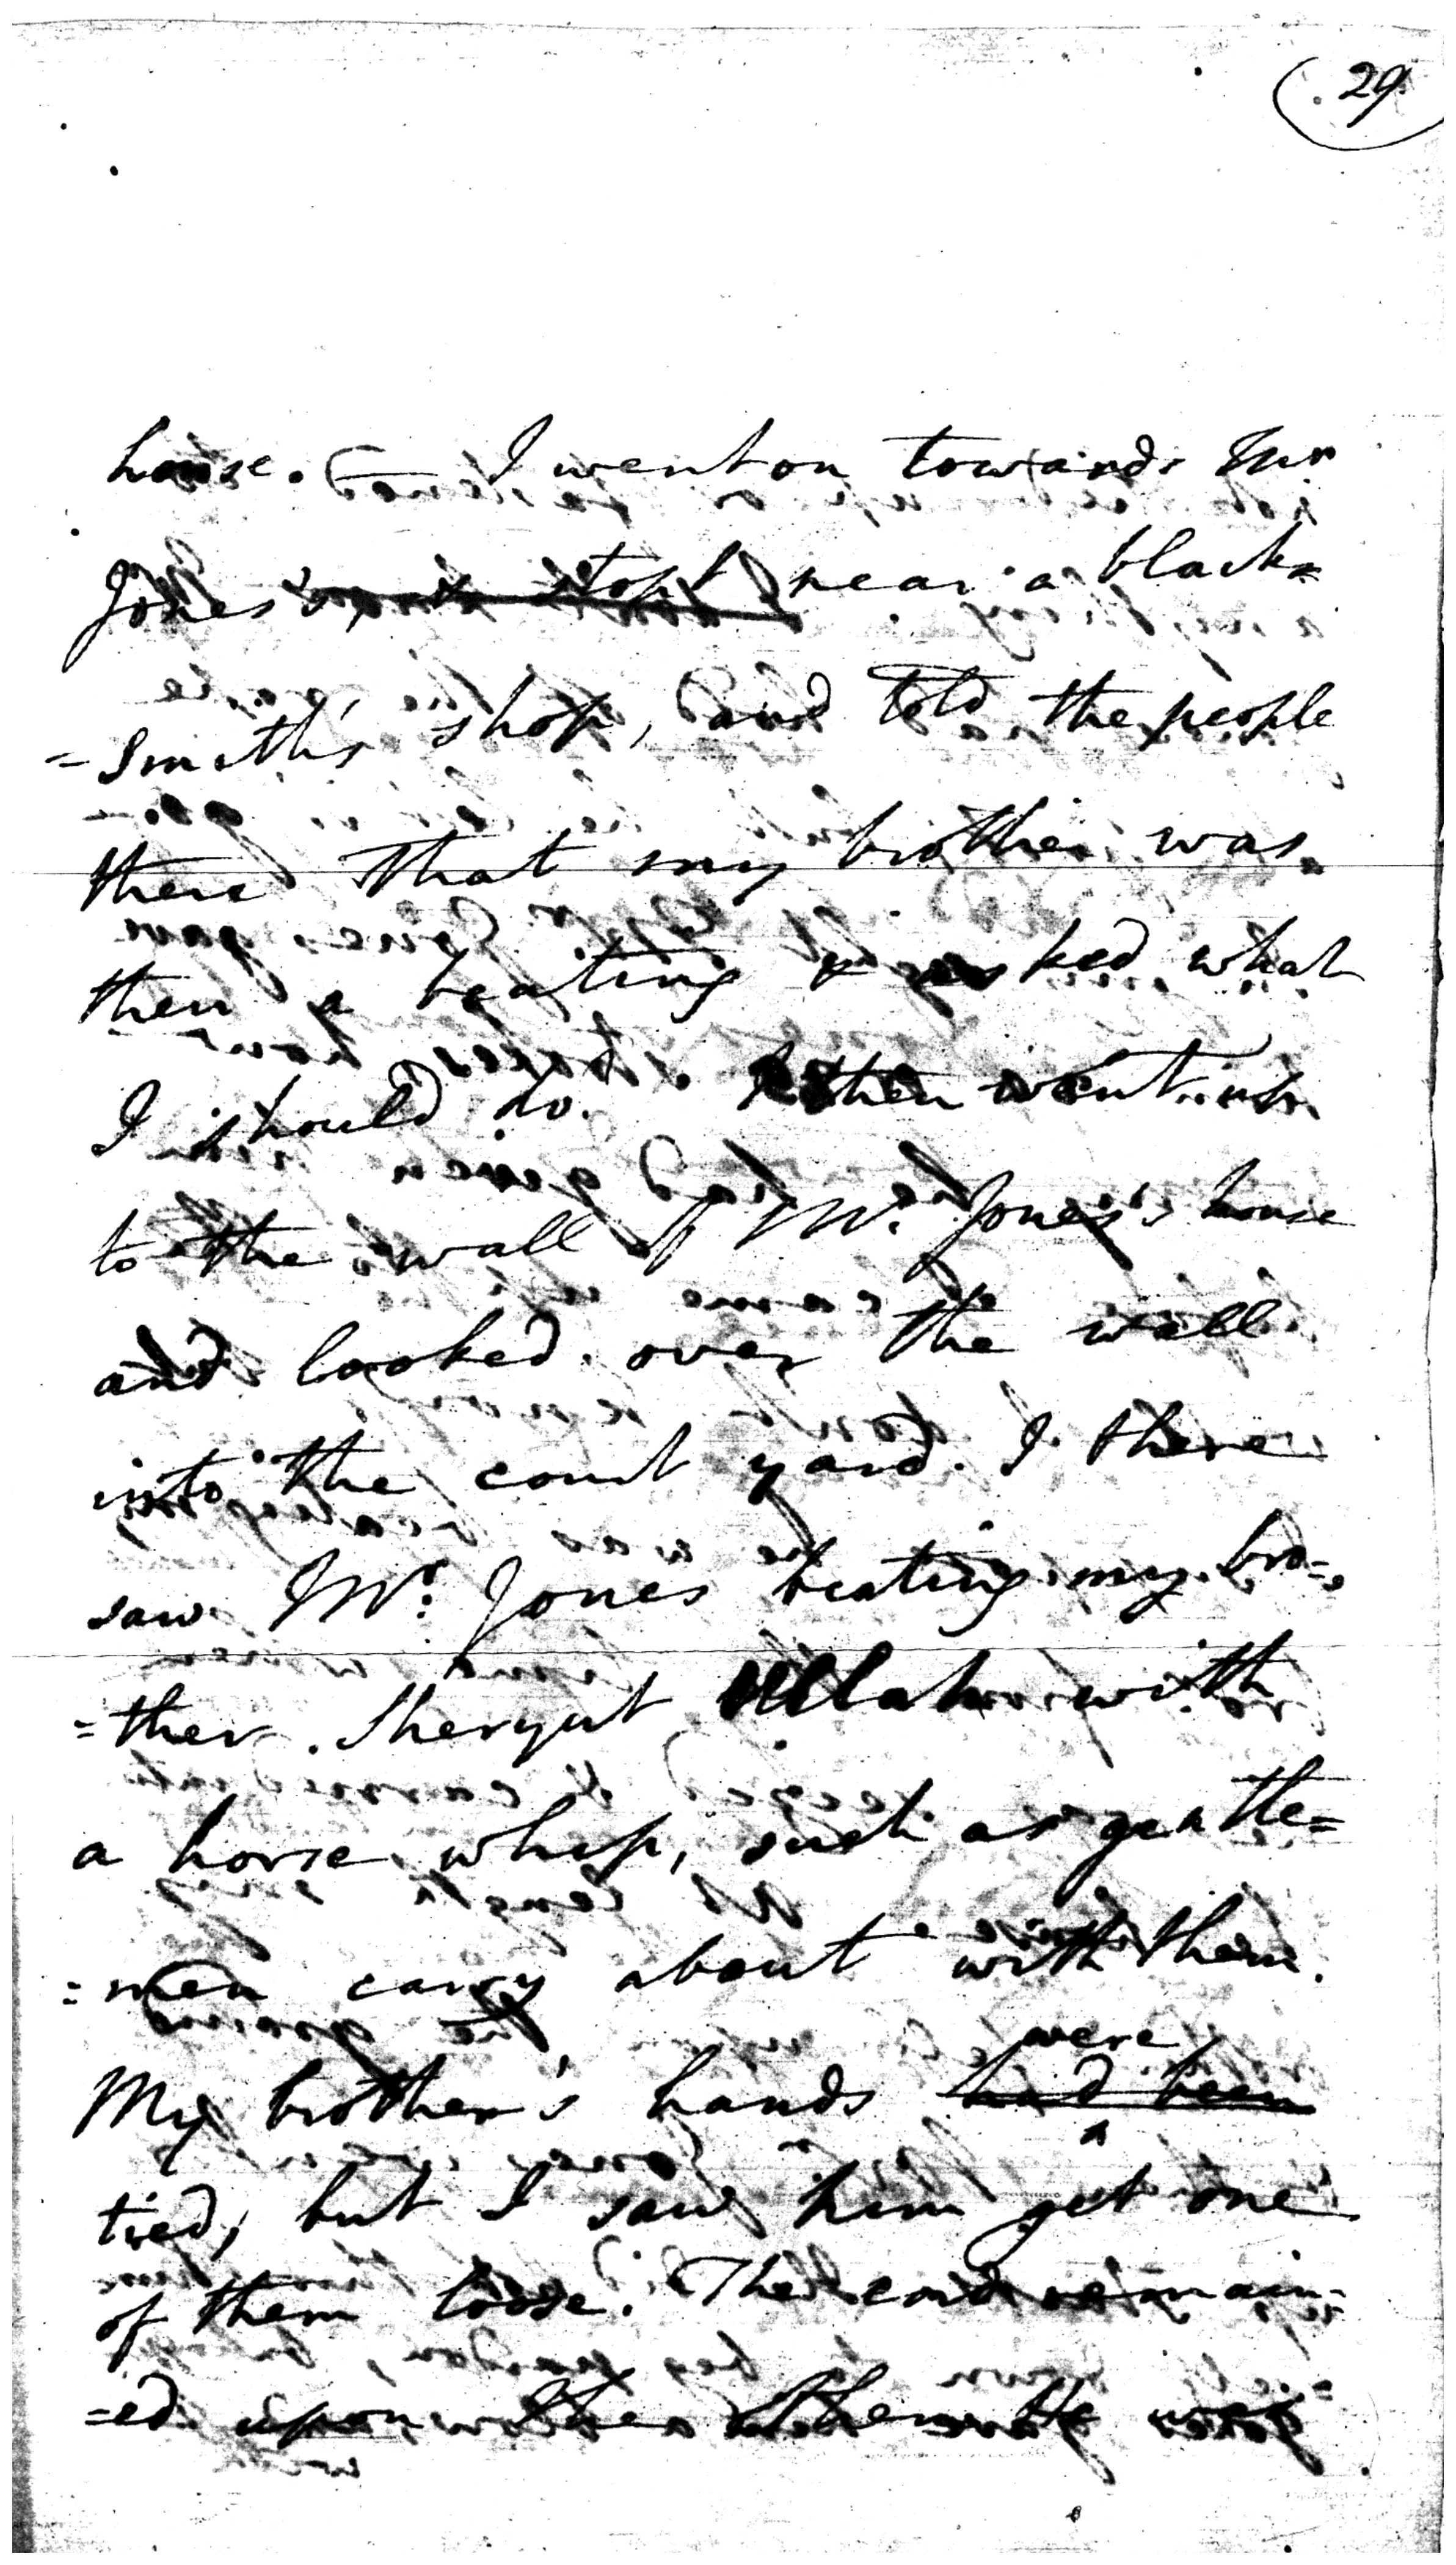 29
house. — I went on towards Mr
Jones's & stopt near a black=
=smith's shop, and told the people
there that my brother was
then a beating & asked what
I should do. I then went up
to the wall of Mr. Jones's house
and looked over the wall
into the court yard. I there
saw Mr. Jones beating my bro=
=ther. Sheryut Ullah with
a horse whip, such as gentle=
=men carry about with them.
were
My brother's hands had been
tied, but I saw him get one
of them loose. The cord remain=
=ed upon the other. He was